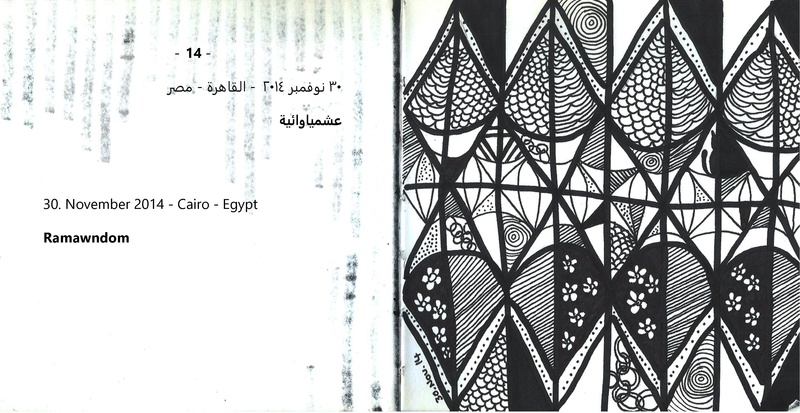 - 14 -
٣٠ نوفمبر ٢٠١٤ - القاهرة - مصر
عشمياوائية
30. November 2014 - Cairo - Egypt
Ramawndom
30.Nov.14